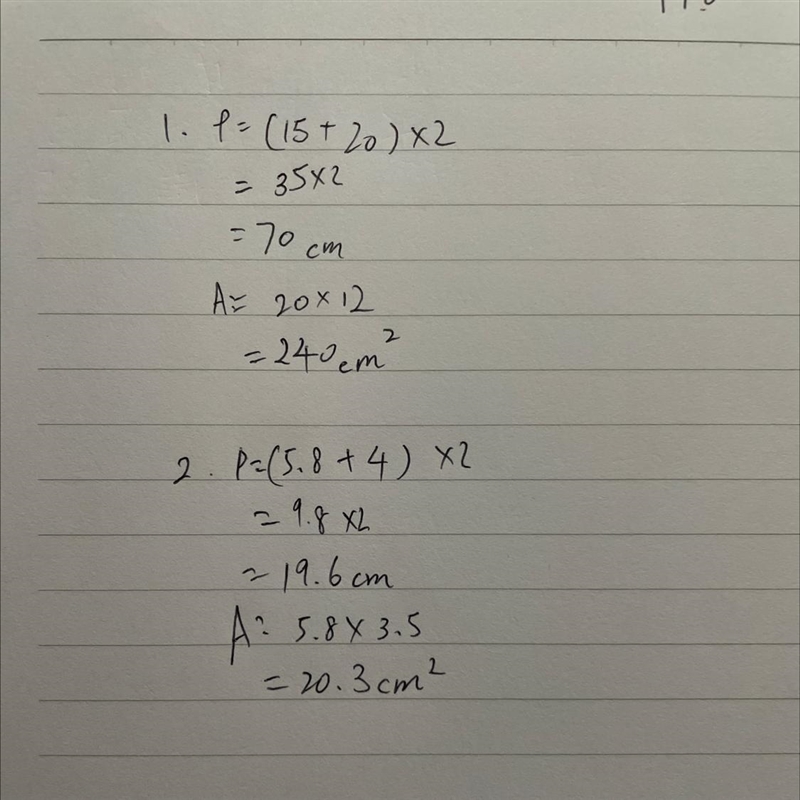 1. P=(15+20)×2
= 35×2
=70 cm
A= 20×12
=240cm²
2. P=(5.8+4) ×2
=9.8×2
=19.6cm
A= 5.8×3.5
=20.3cm²